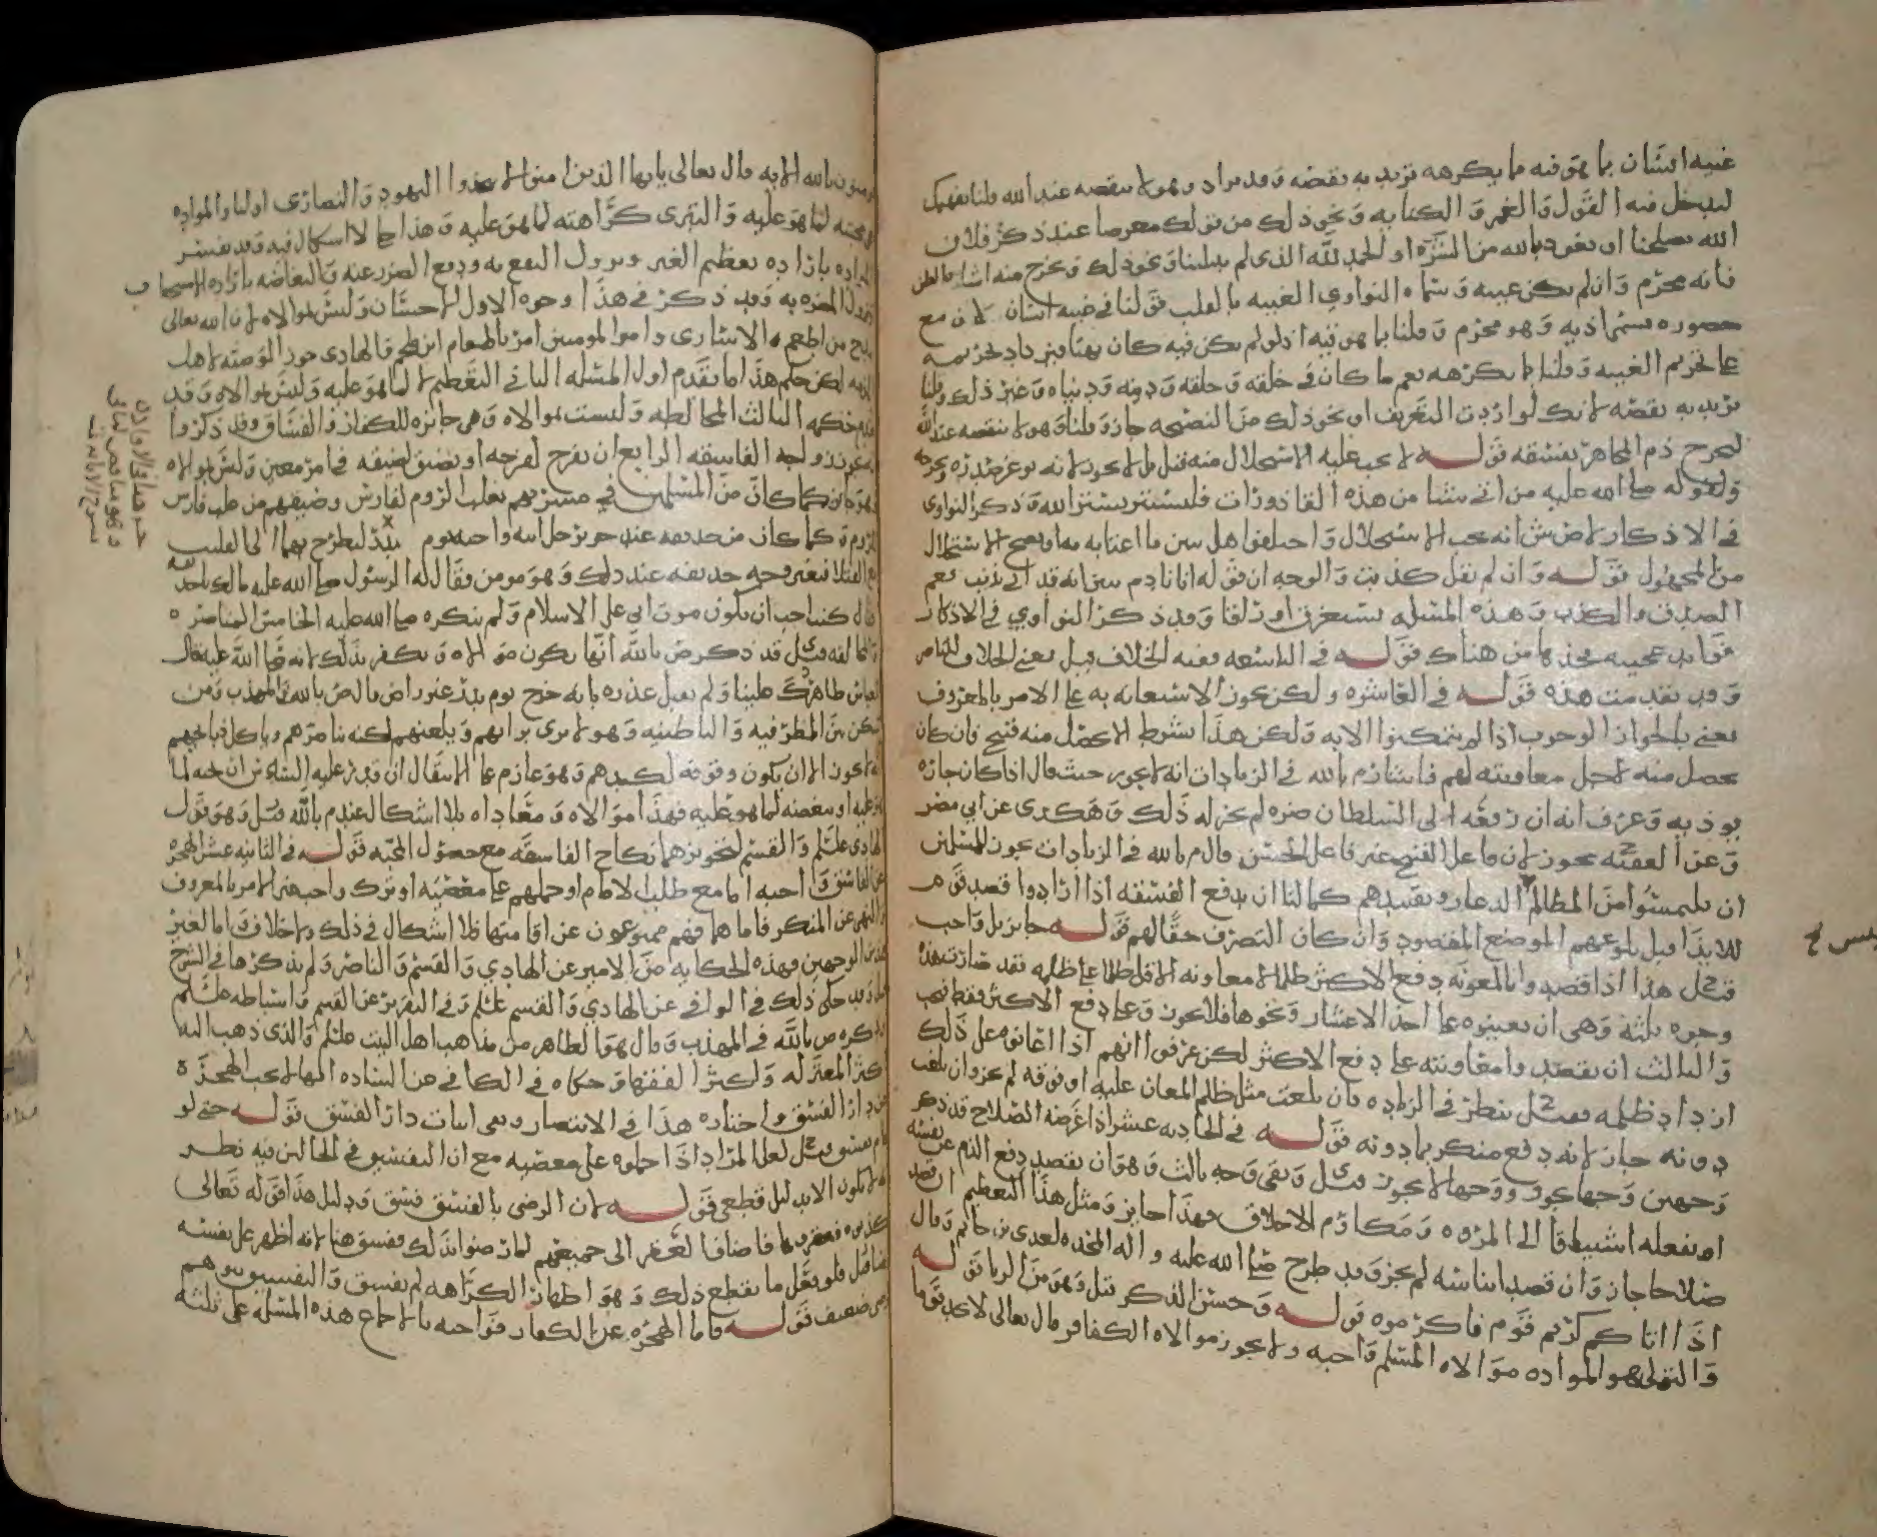 غيبة انسان بما هو فيه ما يكرهه تريد به نقصه وقد يراد وهو لا ينقصه عند الله
ليدخل فيه القول والغمز والكتابة ونحو ذلك من قولك معرضا عند ذكر فلان
الله يصلحنا او نعوذ بالله من الشره او الحمد لله الذي لم يبلينا ونحو ذلك وتخرج منه
فانه محرم وان لم يكن غيبه وسماه النواوي الغيبه بالقلب قولنا في غيبه انسان لان مع
وهو محرم وقلنا بما هو فيه اذ لو لم يكن فيه كان بهتا
على تحريم الغيبه وقلنا ما يكرهه يعم ما كان في خلقه وخلقه ودينه ودنياه وغير ذلك وقلنا
تريد به نقصه لانك لو اردت التعريف او نحو ذلك من النصيحه جاز وقلنا وهو لا ينقصه عند الله
ليخرج ذم المجاهر بفسقه قوله لا يجب عليه الاستحلال منه قيل بل لا يجوز لانه يوغر صدره
ولقوله صلى الله عليه من اتى شيئا من هذه القاذورات فليستتر بستر الله وذكر النواوي
في الاذكار لاض ش انه يجب الاستحلال واختلفوا هل يبين ما اغتابه به او يصح الاستحلال
من المجهول قوله وان لم يقل كذبت والوجه ان قوله انا نادم
الصدق والكذب وهذه المسئله تستغرق اوراقا وقد ذكر النواوي في الاذكار
فوايد عجيبه فخذها من هناك قوله في التاسعه ففيه الخلاف قيل يعني الخلاف
وقد تقدمت هذه قوله في العاشره ولكن يجوز الاستعانه به على الامر بالمعروف
يعني بالجواز الوجوب اذا لم يتمكنوا الا به ولكن هذا بشرط الا يحصل منه قبيح فان كان
يحصل منه لاجل معاونته لهم فاشار م بالله في الزيادات انه لا يجوز حيث قال اذا كان جاره
يوذيه وعرف انه ان رفعه الى السلطان ضره لم يجز له ذلك وهكذى عن ابي مضر
وعن الفقيه يجوز لان فاعل القبيح غير فاعل الحسن قال م بالله في الزيادات يجوز للمسلمين
ان يلتمسوا من المظالم الدعار وتقييدهم كما لنا ان يدفع الفسقه اذا ارادوا قصد قوم
للايذا قبل بلوغهم الموضع المقصود وان كان التصرف حقا لهم قوله جايز بل واجب
قيل هذا اذا قصدوا بالمعونه دفع الاكثر ظلما لا معاونة الاقل ظلما على ظلمه فقد صارت هذه
وجوه ثلثة وهي ان يعينوه على اخذ الاعشار ونحوها فلا يجوز وعلى دفع الاكثر فقط فيجب
والثالث ان يقصدوا معاونته على دفع الاكثر لكن عرفوا انهم اذا اعانوه على ذلك
ازداد ظلمه فقيل ينظر في الزياده فان بلغت مثل ظلم المعان عليه او فوقه لم يجز وان بلغت
دونه جاز لانه دفع منكر بما دونه قوله في الحاديه عشر اذا غرضه الصلاح قد ذكر
وجهين وجها يجوز ووجها لا يجوز قيل وبقي وجه ثالث وهو ان يقصد دفع الذم عن نفسه
او يفعله استباقا الى المروه ومكارم الاخلاق فهذا جايز ومثل هذا التعظيم ان قصد
صلاحا جاز وان قصد ايناسه لم يجز وقد طرح صلى الله عليه واله المخده لعدي بن حاتم وقال
اذا اتاكم كريم قوم فاكرموه قوله وحسن الذكر قيل وهو من الريا قوله
والتولي هو المواده موالاه المسلم واجبه ولا يجوز موالاه الكافر قال تعالى لا تجد قوما
يومنون بالله الايه وقال تعالى يايها الذين امنوا لا تتخذوا اليهود والنصارى اوليا والمواده
محبته لما هو عليه والتبري كراهته لما هو عليه وهذا مما لا اشكال فيه وقد يفسر
المواده بارادة تعظيم الغير ونزول النفع به ودفع الضرر عنه
نزول المضره به وقد ذكر في هذا وجوه الاول الاحسان وليس بموالاه لان الله تعالى
مدح من اطعم الاسارى وامر المومنين بالطعام والهادي جوز الوصيه لاهل
الذمه لكن حكم هذا ما تقدم اول المسئله الثاني التعظيم لا لما هو عليه وليس بموالاه وقد
تقدم حكمه الثالث المخالطه وليست بموالاه وهي جايزه للكفار والفساق وقد ذكروا
زواجه الفاسقه الرابع ان يفرح لفرحه او يضيق لضيقه في امر معين وليس بموالاه
وهو جايز كما كان من المسلمين في مسرتهم بغلب الروم لفارس وضيقهم من غلب فارس
للروم وكما كان من حذيفه عند حز رجل ابيه واخيه يوم بدر ليطرح بهما الى القليب
مع القتلا فتغير وجه حذيفه عند ذلك وهو مومن فقال له الرسول صلى الله عليه مالك يا حذيفه
قال كنت احب ان يكون موت ابي على الاسلام ولم ينكره صلى الله عليه الخامس المناصره
والمحالفه قيل قد ذكر ض بالله انها يكون موالاه ويكفر بذلك لانه صلى الله عليه قال
للعباس ظاهرك علينا ولم يقبل عذره بانه خرج يوم بدر غير راض م بالله والمهذب ومن
سكن بين المطرفيه والباطنيه وهو لا يرى برايهم ويلعنهم لكنه يناصرهم وياكل ذبايحهم
لا يجوز الا ان يكون وقوفه لكيدهم وهو عازم على الانتقال ان قدر عليه السادس ان يحبه لما
هو عليه او يبغضه لما هو عليه فهذا موالاه ومعاداه بلا اشكال عند م بالله قيل وهو قول
الهادي عليلم والقسم لتجويزهما نكاح الفاسقه مع حصول المحبه قوله في الثانيه عشر الهجره
عن الفاسق واجبه اما مع طلب الامام او حملهم على معصيه او ترك واجب غير الامر بالمعروف
والنهي عن المنكر فاما هما فهم ممنوعون عن اقامتها فلا اشكال في ذلك ولا خلاف واما لغير
هذين الوجهين فهذه الحكايه من الامير عن الهادي والقسم والناصر ولم يذكرها في الشرح
وقد حكى ذلك في الوافي عن الهادي والقسم عليلم وفي التقرير عن القسم واسباطه عليلم
وذكره ص بالله في المهذب وقال هو الظاهر من مذاهب اهل البيت عليلم والذي ذهب اليه
اكثر المعتزله واكثر الفقها وحكاه في الكافي عن الساده انها لا تجب الهجره
من دار الفسق واختاره هذا في الانتصار ونفى اثبات دار الفسق قوله حتى لو
قيل لعل المراد اذا حملوه على معصيه مع ان التفسيق في الحالين فيه نظر
لا يكون الا بدليل قطعي قوله لان الرضى بالفسق فسق ودليل هذا قوله تعالى
فكذبوه فعقروها فاضاف العقر الى جميعهم لما رضوا بذلك وفسق هنا لانه اظهر على نفسه
فلو فعل ما يقطع ذلك وهو اظهار الكراهه لم يفسق والتفسيق
ضعيف قوله فاما الهجره عن الكفار فواجبه بالاجماع هذه المسئله على ثلثه